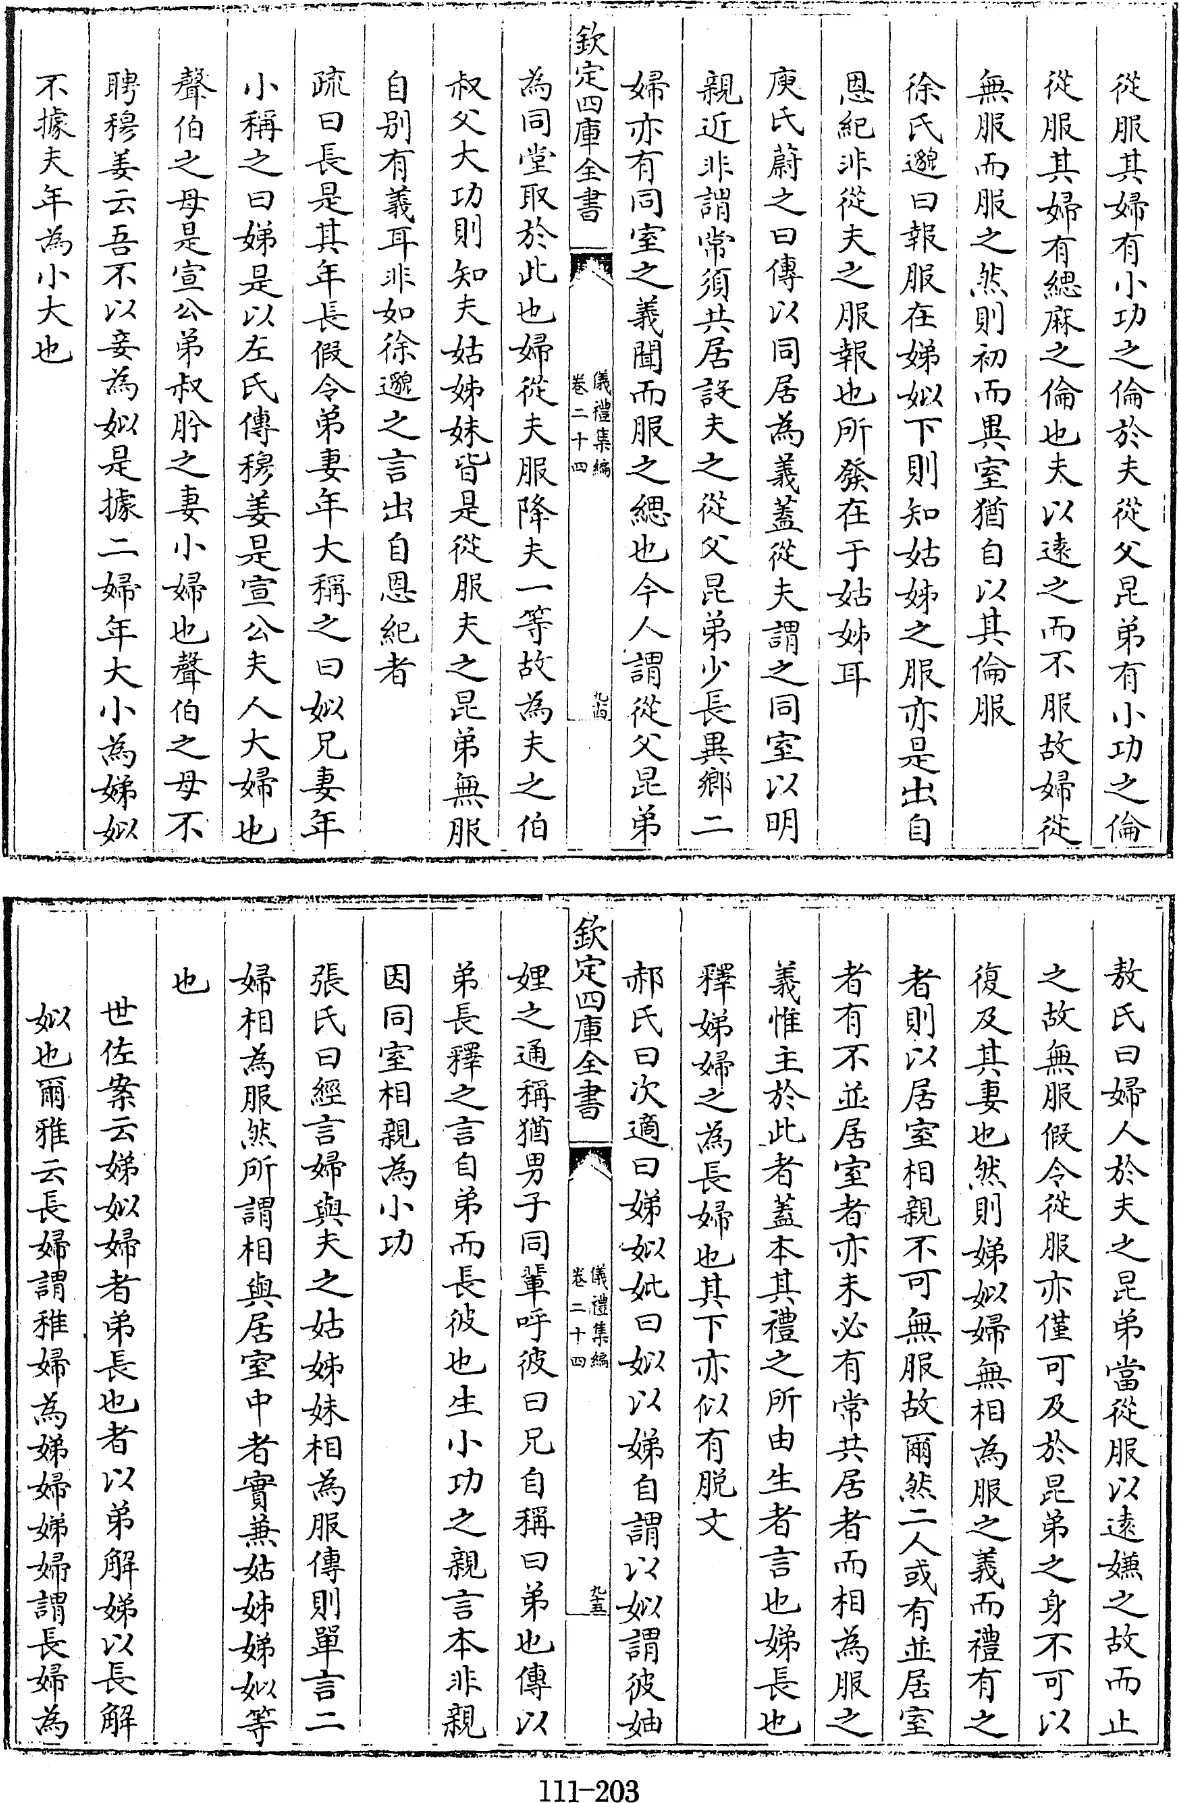 從服其婦有小功之倫於夫從父昆弟有小功之倫
從服其婦有緦麻之倫也夫以遠之而不服故婦從
無服而服之然則初而異室猶自以其倫服
徐氏邈曰報服在娣姒下則知姑姊之服亦是出自
恩紀非從夫之服報也所發在于姑姊耳
庾氏蔚之曰傳以同居為義蓋從夫謂之同室以明
親近非謂常須共居設夫之從父昆弟少長異鄉二
婦亦有同室之義聞而服之緦也今人謂從父昆弟
欽定四庫全書
儀禮集編
卷二十四
九四
為同堂取於此也婦從夫服降夫一等故為夫之伯
叔父大功則知夫姑姊妹皆是從服夫之昆弟無服
自別有義耳非如徐邈之言出自恩紀者
疏曰長是其年長假令弟妻年大稱之曰姒兄妻年
小稱之曰娣是以左氏傳穆姜是宣公夫人大婦也
聲伯之母是宣公弟叔肸之妻小婦也聲伯之母不
聘穆姜云吾不以妾為姒是據二婦年大小為娣姒
不據夫年為小大也
敖氏曰婦人於夫之昆弟當從服以遠嫌之故而止
之故無服假令從服亦僅可及於昆弟之身不可以
復及其妻也然則娣姒婦無相為服之義而禮有之
者則以居室相親不可無服故爾然二人或有並居室
者有不並居室者亦未必有常共居者而相為服之
義惟主於此者蓋本其禮之所由生者言也娣長也
釋娣婦之為長婦也其下亦似有脫文
郝氏曰次適曰娣姒妣曰姒以娣自謂以姒謂彼妯
欽定四庫全書
儀禮集編
卷二十四
九五
娌之通稱猶男子同輩呼彼曰兄自稱曰弟也傳以
弟長釋之言自弟而長彼也生小功之親言本非親
因同室相親為小功
張氏曰經言婦與夫之姑姊妹相為服傳則單言二
婦相為服然所謂相與居室中者實兼姑姊娣姒等
也
世佐案云娣姒婦者弟長也者以弟解娣以長解
姒也爾雅云長婦謂稚婦為娣婦娣婦謂長婦為
111-203